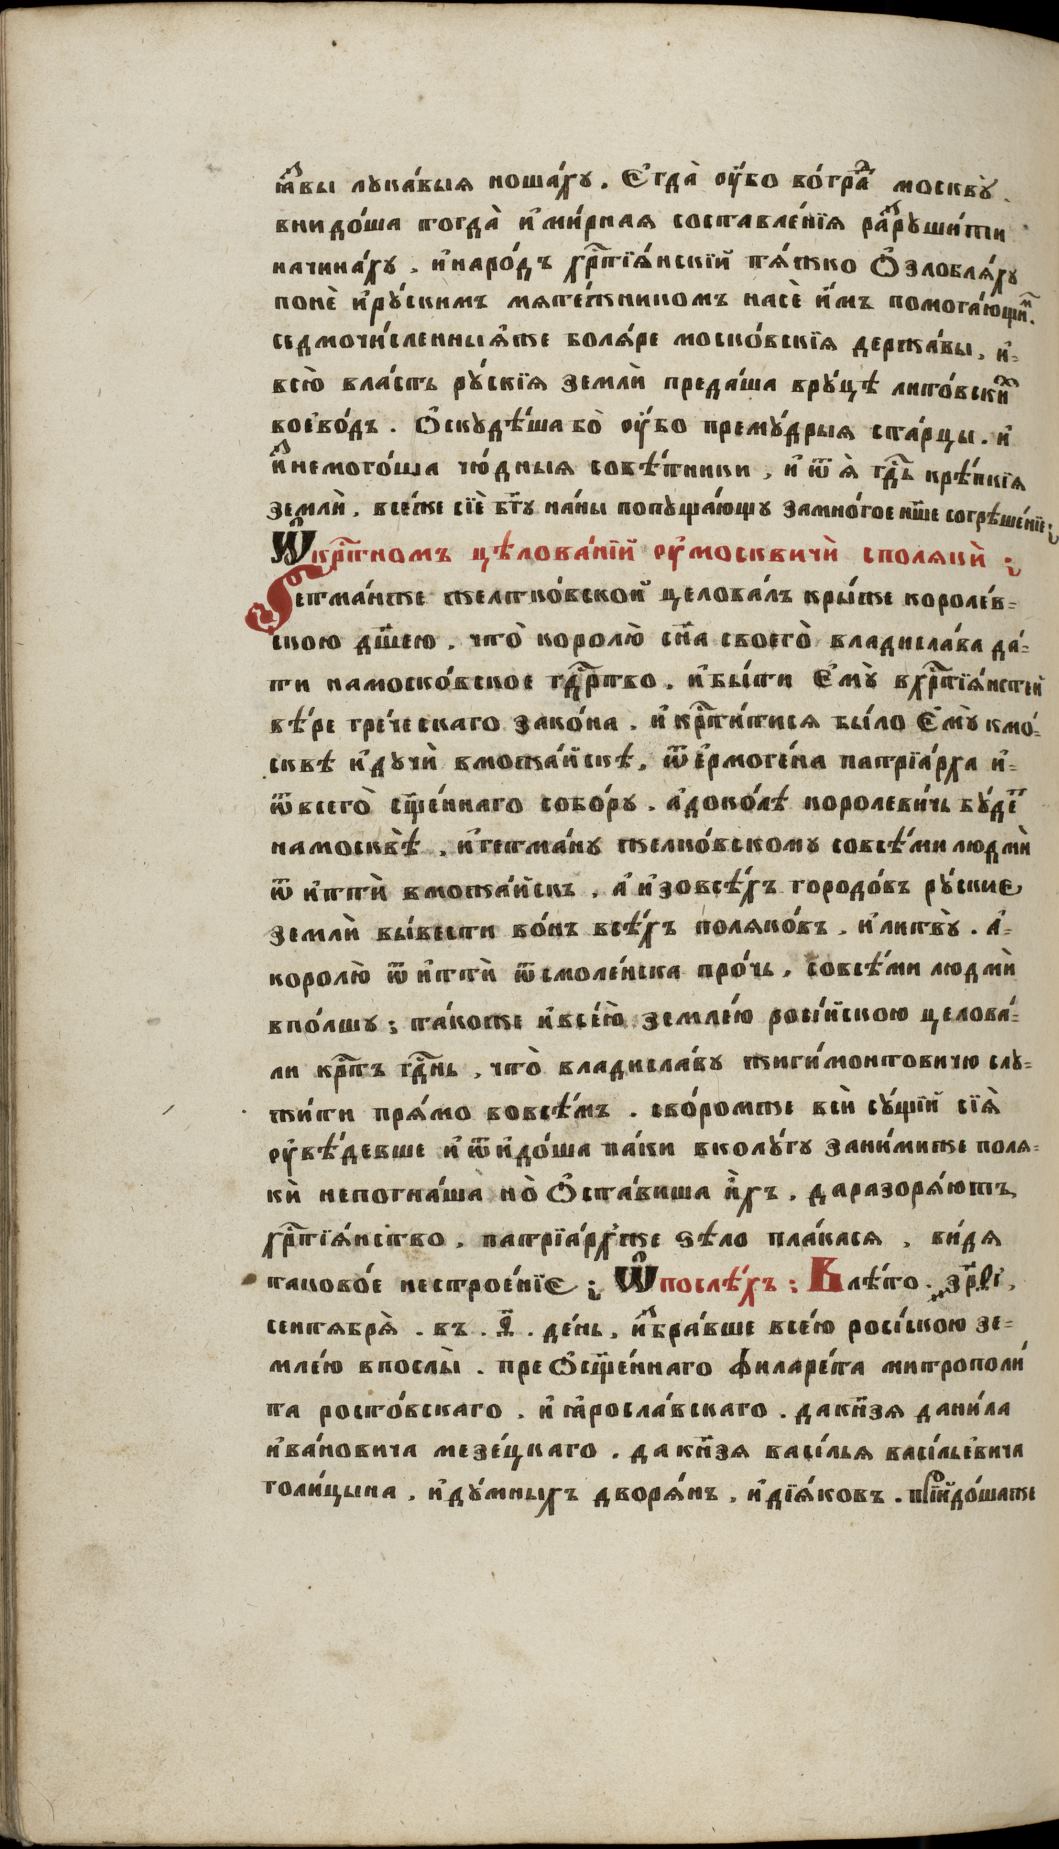 ꙗ҆́звы лука́выя ноша́хꙋ . Є҆гда̀ оу҆́бо во́гра́ⷣ москвꙋ̀ .
внидо́ша тогда̀ и҆ми́рная составле́нїя ра́ꙁрꙋши́ти
начина́хꙋ , и҆наро́дъ хрⷭ҇тїѧ́нскїй тѧ́жко Ѻ҆ꙁлоблѧ́хꙋ
понѐ и҆рꙋ́скимъ мяте́жникомъ насѐ и҆́мъ помога́ющиⷨ .
седмочи́сленныѧ́же болѧ́ре моско́вскїя держа́вы , и҆-
всю̀ вла́сть рꙋ́скїя землѝ преда́ша врꙋ́цѣ лито́вскиⷯ
воево́дъ . Ѻ҆скꙋдѣ́ша бо̀ оу҆́бо премꙋ́дрыя ста́рцы . и҆
и҆́ꙁнемого́ша чю́дныя совѣ́тники , и҆ ѿя̀ гдⷭ҇ь крѣ́пкїя
землѝ , все́же сїѐ бг҃ꙋ на́ны попꙋща́ющꙋ замно́гое на́ше согрѣше́нїе ;
Ѡ҆ крⷭ҇тномъ цѣлова́нїй оу҆москвичѝ споля́кѝ ;
Гетма́нже желтко́вской целова́лъ кры́же короле́в-
скою дш҃ею , что̀ королю̀ сн҃а своего̀ владисла́ва да́-
ти намоско́вское гдⷭ҇рство . и҆бы́ти Є҆мꙋ̀ вхрⷭ҇тїѧ́нстей
вѣ́ре гре́ческаго зако́на . и҆ крⷭ҇ти́тися бы́ло Є҆мꙋ̀ кмо́-
сквѣ и҆дꙋчѝ вможа́йскѣ , ѿ є҆рмоге́на патрїа́рха и҆-
ѿвсего̀ сщ҃е́ннаго собо́рꙋ . а҆доко́лѣ короле́вичь бꙋ́деⷮ
намосквѣ̀ , и҆гетма́нꙋ желко́вскомꙋ совсѣ́ми людмѝ
ѿ иттѝ вможа́йскъ , а҆ и҆зовсѣ́хъ городо́въ рꙋ́скиє
землѝ вы́вести во́нъ всѣ́хъ поляко́въ , и҆литвꙋ̀ . а҆-
королю̀ ѿ иттѝ ѿсмоле́нска про́чь , совсѣ́ми людмѝ
впо́лшꙋ ; та́коже и҆все́ю земле́ю росі́йскою целова́-
ли крⷭ҇тъ гдⷭ҇нь , что̀ владисла́вꙋ жигимонтовичю слꙋ-
жи́ти прѧ́мо вовсе́мъ . ско́ромже всѝ сꙋ́щїй сїѧ̀
оу҆вѣ́девше и҆ ѿидо́ша па́ки вколꙋ́гꙋ зани́миже поля-
кѝ непогна́ша но̀ Ѻ҆ста́виша и҆̀хъ , даразорѧ́ютъ
хрⷭ҇тїѧ́нство , патрїа́рхже ѕѣ́ло пла́кася , ви́дя
таково́е нестрое́нїє ; Ѡ҆послѣ́хъ ; Влѣ́то . ҂зр҃ѳі ,
сентября̀ . въ . а҃ . де́нь , и҆́ꙁбра́вше все́ю росі́скою зе-
мле́ю впослы̀ . преѺсщ҃е́ннаго филаре́та митрополи́
та росто́вскаго , и҆ ꙗ҆росла́вскаго . дакн҃зя дани́ла
и҆ва́новича мезе́цкаго . дакн҃зя васі́лья васі́льевича
голи́цына , и҆дꙋ́мныхъ дворѧ́нъ , и҆дїѧ́ковъ . прїидо́шаже